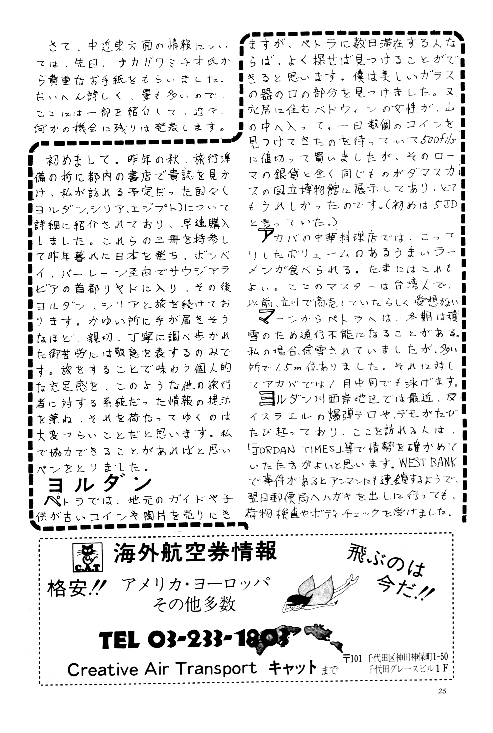 さて、中近東方面の情報につい
ては、先日、ナカガワミチオ氏か
ら貴重なお手紙をもらいました。
たいへん詳しく、量も多いので、
ここには一部を紹介して、追々
何かの機会に残りは発表します。
初めまして。昨年の秋、旅行準
備の折に都内の書店で貴誌を見か
け、私が訪れる予定だった国々(
ヨルダン、シリア、エジプト)について
詳細に紹介されており、早速購入
しました。これらの三冊を持参し
て昨年暮れに日本を発ち、ボンベ
イ、バーレーン経由でサウジアラ
ビアの首都リヤドに入り、その後
ヨルダン、シリアと旅を続けてお
ります。かゆい所に手が届きそう
なほど、親切、丁寧に調べ歩かれ
た御苦労には敬意を表するのみで
す。旅をすることで味わう個人的
な充足感を、このような他の旅行
者に対する系統だった情報の提示
を兼ね、それを荷なってゆくのは
大変つらいことだと思います。私
で協力できることがあればと思い
ペンをとりました。
ヨルダン
ペトラでは、地元のガイドや子
供が古いコインや陶片を売りにき
ますが、ペトラに数日滞在する人な
らば、よく探せば見つけることがで
きると思います。僕は美しいガラス
の器の口の部分を見つけました。又
穴居に住むベドウィンの女性が、山
の中へ入って、一日数個のコインを
見つけてきたのを待っていて500fils
に値切って買いましたが、そのロー
マの銀貨と全く同じものがダマスカ
スの国立博物館に展示してあり、とて
もうれしかったのです。(初めは5JD
と言っていた。)
アカバの中華料理店では、こって
りしたボリュームのあるうまいラー
メンが食べられる。たまにはこれも
よい。ここのマスターは台湾人で、
以前、立川で商売していたらしく愛想がいい
マーンからペトラへは、冬期は積
雪のため通行不能になることがある。
私の場合、除雪されていましたが、多い
所で1.5m位ありました。それに対し
てアカバでは1月中旬でも泳げます。
ヨルダン川西岸地区では最近、反
イスラエルの爆弾テロや、デモがたび
たび起っており、ここを訪れる人は、
「JORDAN TIMES」等で情勢を確かめて
いた方がよいと思います。WEST BANK
で事件があるとアンマンにも連鎖するようで、
翌日郵便局へハガキを出しに行っても、
荷物検査やボディチェックを受けました。
C.A.T.
海外航空券情報
格安!!
アメリカ・ヨーロッパ
その他多数
飛ぶのは
今だ!!
TEL 03-233-1803
Creative Air Transport キャットまで
〒101 千代田区神田神保町1-50
千代田グレースビル1F
25